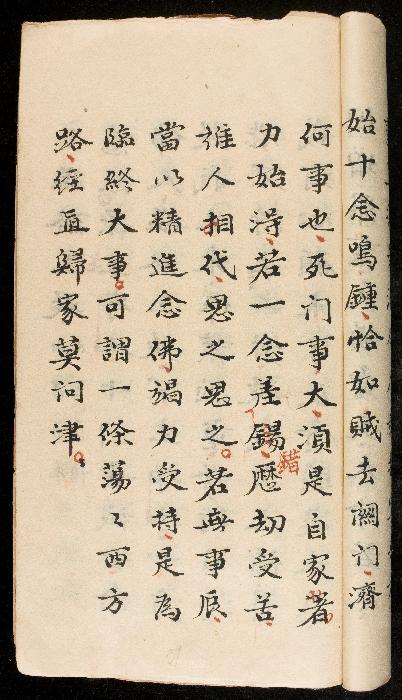 始十念鳴鍾恰如賊去関门濟
何事也死门事大湏是自家著
力始淂若一念差錫歷劫受苦
錯
誰人相代思之思之若無事辰
當以精進念佛竭力受持是為
臨終大事可謂一條蕩〻西方
路経直歸家莫问津